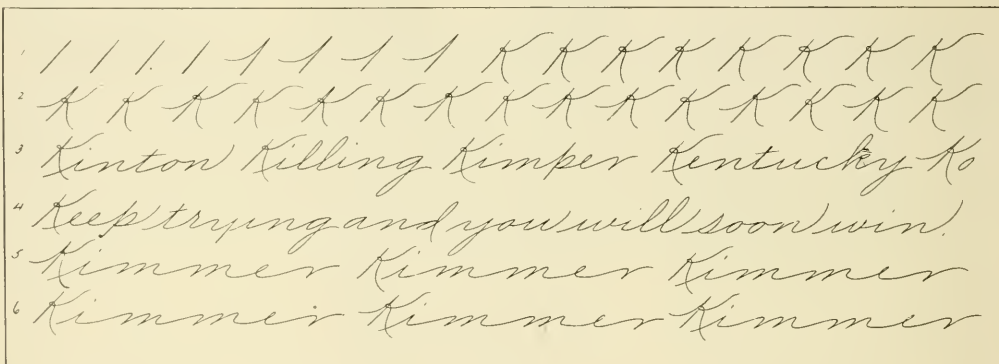 1 / / / / / / / / K K K K K K K K
2 K K K K K K K K K K K K K K K
3 Kinton Killing Kimper Kentucky Ko
4 Keep trying and you will soon win.
5 Kimmer Kimmer Kimmer
6 Kimmer Kimmer Kimmer